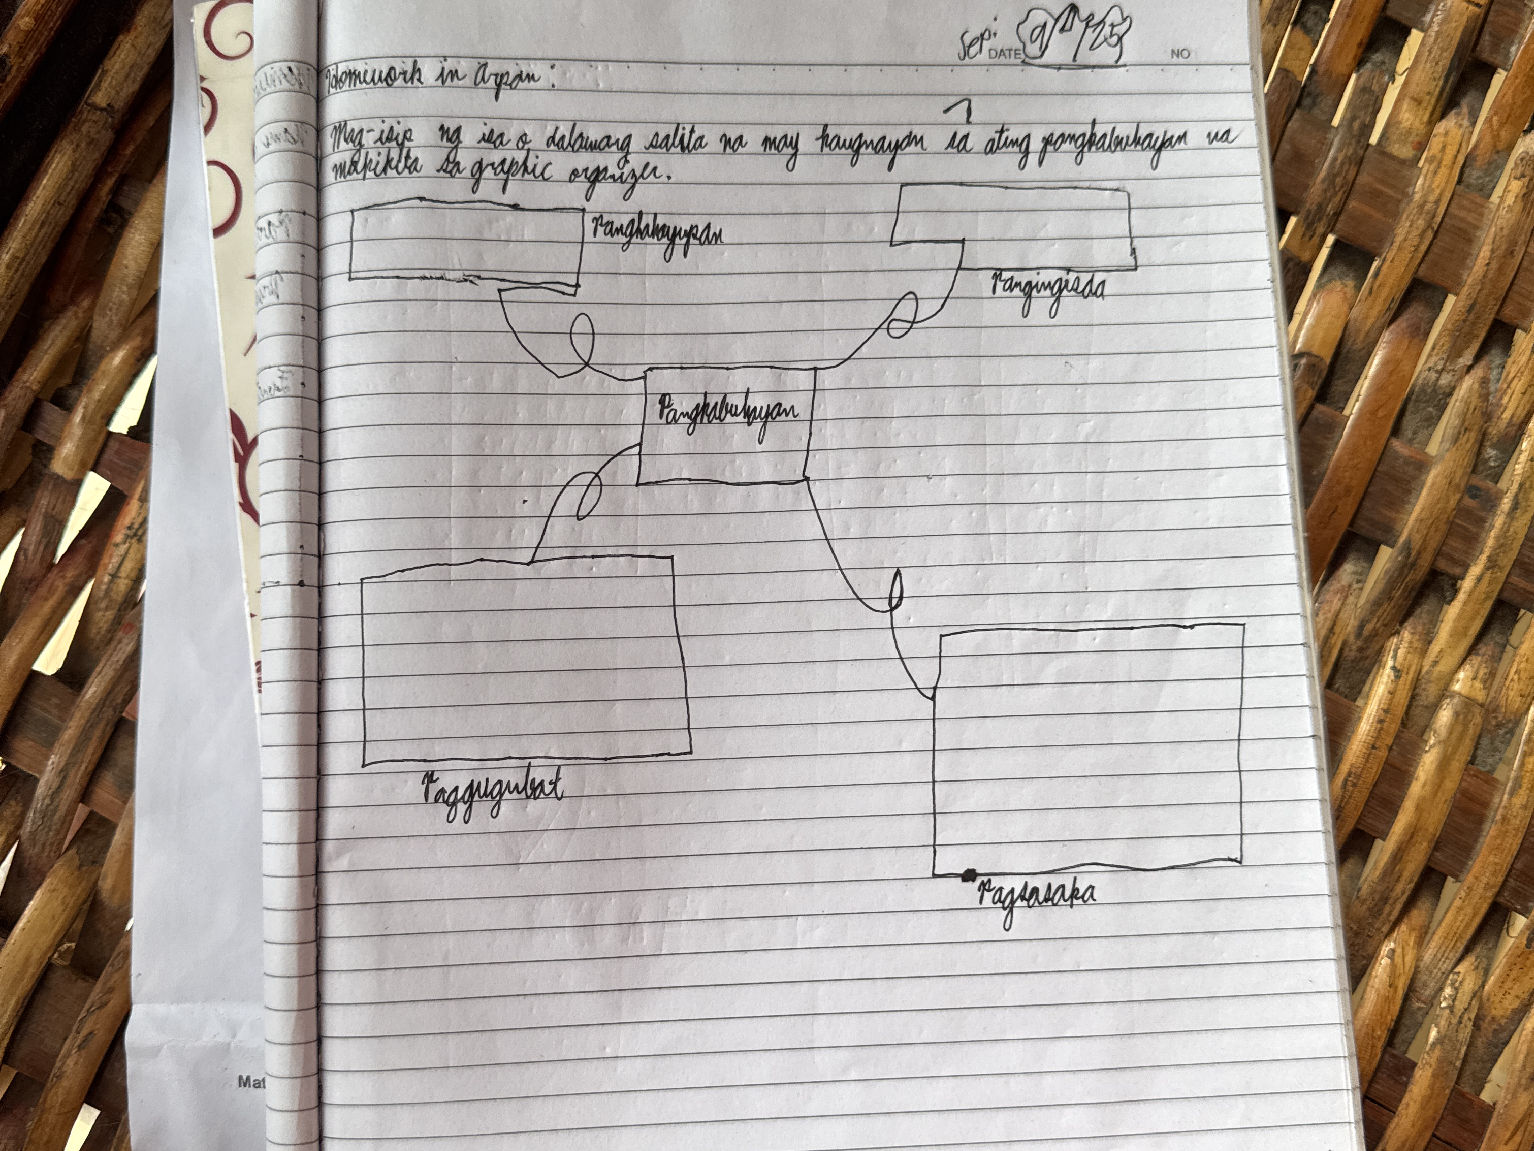 Sep:
DATE 9/11/25 NO
Homework in Arpan:
Mag-isip ng isa o dalawang salita na may kaugnayan sa ating pangkabuhayan na
makikita sa graphic organizer.
Panghahayupan
Pangingisda
Pangkabuhayan
Paggugubat
Pagsasaka
Mat